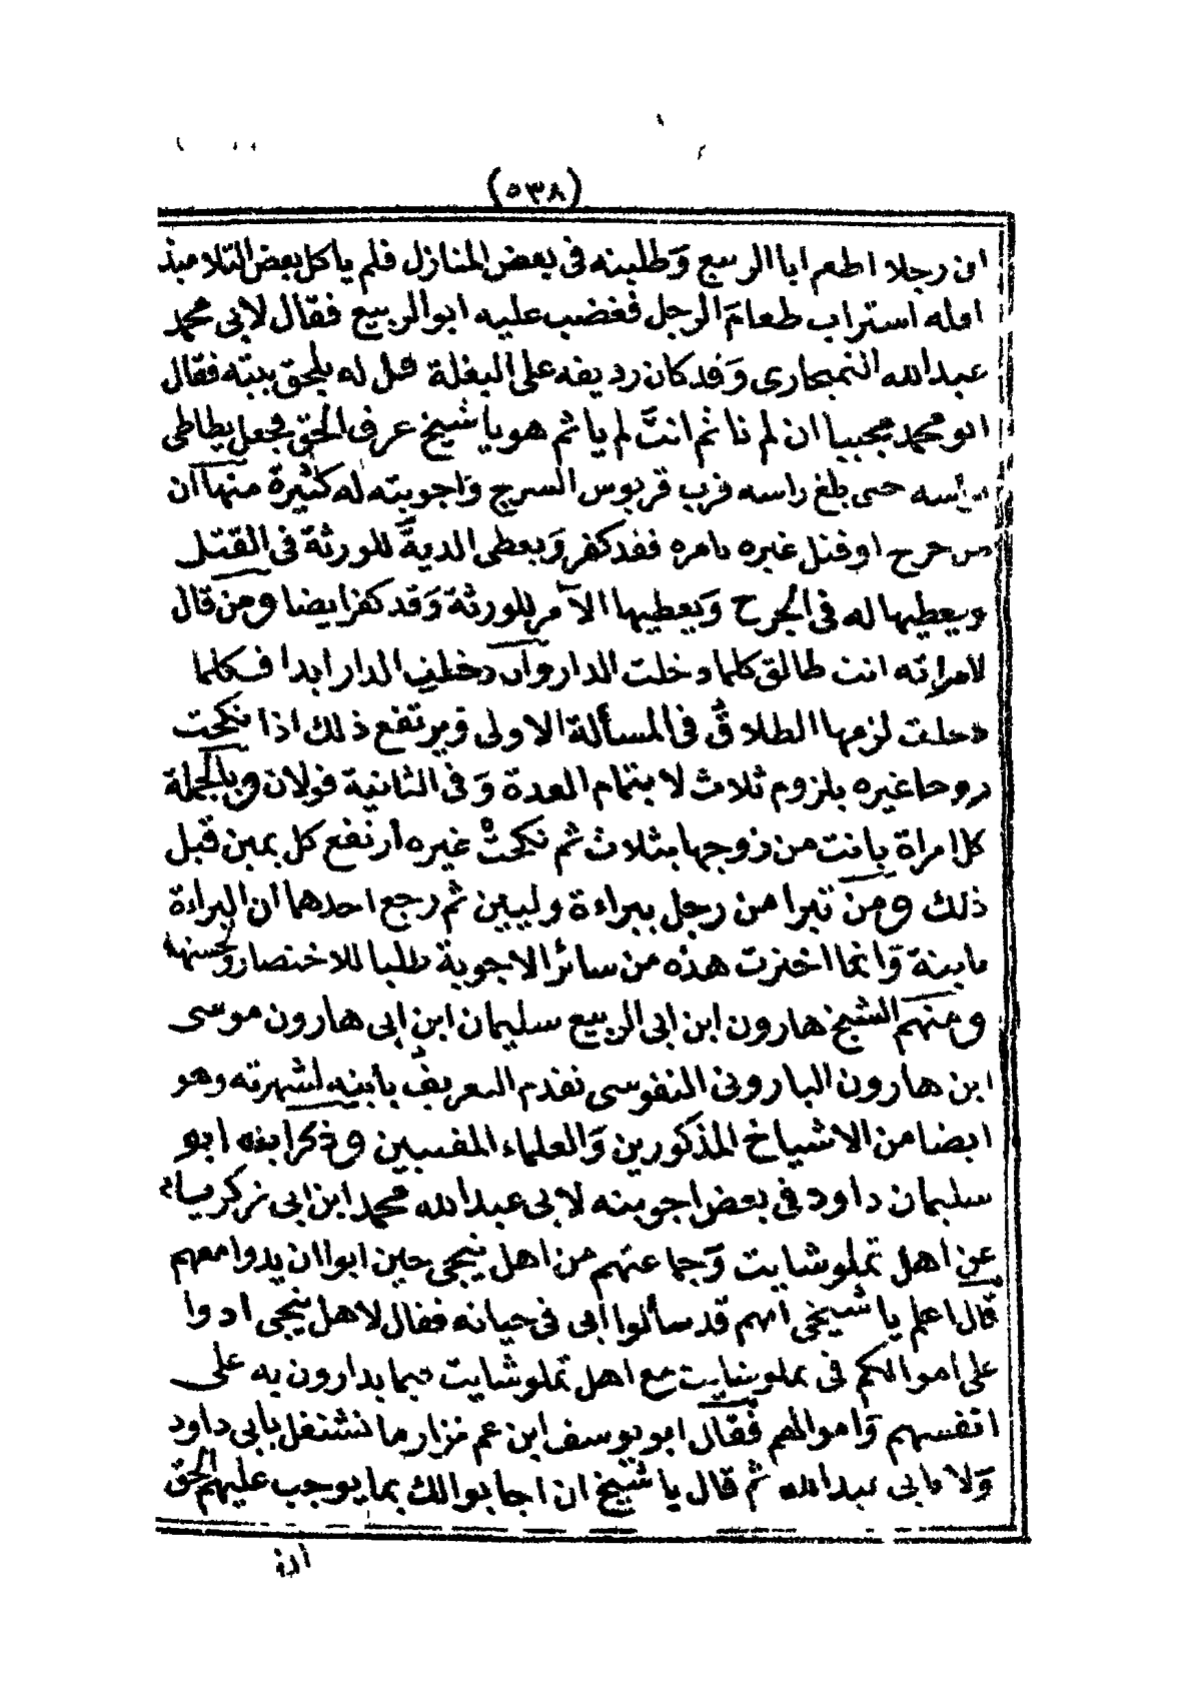 (٥٣٨)
ان رجلا اطعم ابا الربيع وَطلبته فى بعض المنازل فلم ياكل بعض التلاميذ
استراب طعامَ الرجل فغضب عليه ابو الربيع فقال لابى محمد
عبد الله وَقد كان رديفه على البغلة قل له يلحق بيته فقال
ابو محمد مجيبا ان لم تاثم انتَ لم ياثم هو يا شيخ عرف الحق فجعل يطاطى
راسه حتى بلغ راسه قرب قربوس السرج وَاجوبته له كثيرة منها ان
من جرح او قتل غيره بامره فقد كفر وَيعطى الدية للورثة فى القتل
ويعطيها له فى الجرح وَيعطيها الآمر للورثة وَقد كفر ايضا ومن قال
لامراته انت طالق كلما دخلت الدار وان دخلت الدار ابدا فكلما
دخلت لزمها الطلاق فى المسألة الاولى ويرتفع ذلك اذا نكحت
زوجا غيره بلزوم ثلاث لا بتمام العدة وَفى الثانية قولان وبالجملة
كل امراة بانت من زوجها بثلاث ثم نكحتْ غيره ارتفع كل يمين قبل
ذلك ومن تبرا من رجل ببراءة وليين ثم رجع احدهما ان البراءة
وَانما اخترت هذه من سائر الاجوبة طلبا للاختصار ولحسنها
ومنهم الشيخ هارون ابن ابى الربيع سليمان ابن ابى هارون موسى
ابن هارون البارونى النفوسى تقدم التعريف بابنه لشهرته وهو
ايضا من الاشياخ المذكورين وَالعلماء المفتيين وذكر ابنه ابو
سليمان داود فى بعض اجوبته لابى عبد الله محمد ابن ابى زكرياء
عن اهل تملوشايت وَجماعتهم من اهل ينجى حين ابوا ان يدوا معهم
قال اعلم يا شيخى انهم قد سألوا ابى فى حياته فقال لاهل ينجى ادوا
على اموالكم فى تملوشايت مع اهل تملوشايت فيما يدارون به على
انفسهم وَاموالهم فقال ابو يوسف ابن عم نزار ما نشتغل بابى داود
وَلا بابى عبد الله ثم قال يا شيخ ان اجابوا لك بما يوجب عليهم الحق